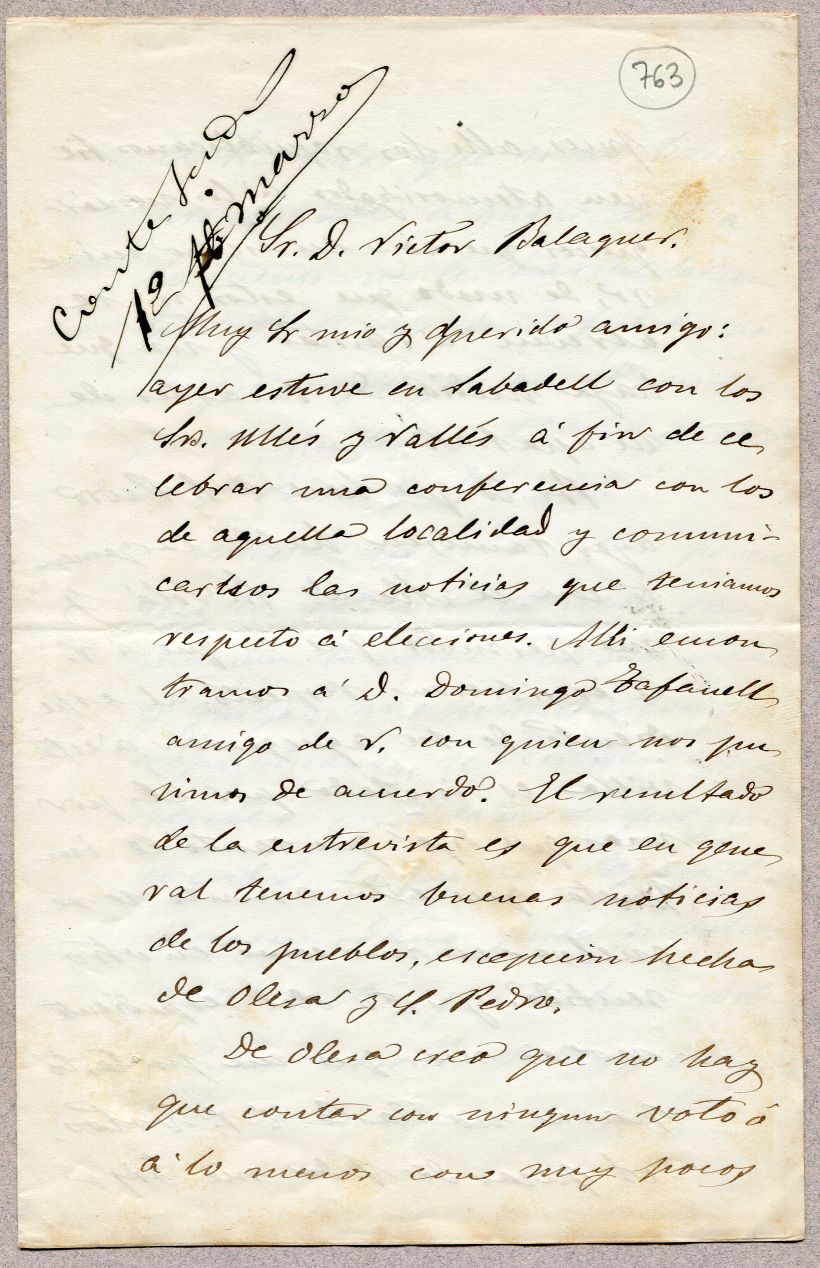 763
Contestada
12 marzo
Sr. D. Victor Balaguer.
Muy Sr mio y querido amigo:
ayer estuve en Sabadell con los
Srs. Ullés y Vallés á fin de ce
lebrar una conferencia con los
de aquella localidad y comuni-
carlsos las noticias que teniamos
respecto á elecciones. Alli encon
tramos á D. Domingo Tafanell
amigo de V. con quien nos pu
simos de acuerdo. El resultado
de la entrevista es que en gene
ral tenemos buenas noticias
de los pueblos, escepcion hecha
de Olesa y S. Pedro.
De Olesa creo que no hay
que contar con ningun voto ó
á lo menos con muy pocos